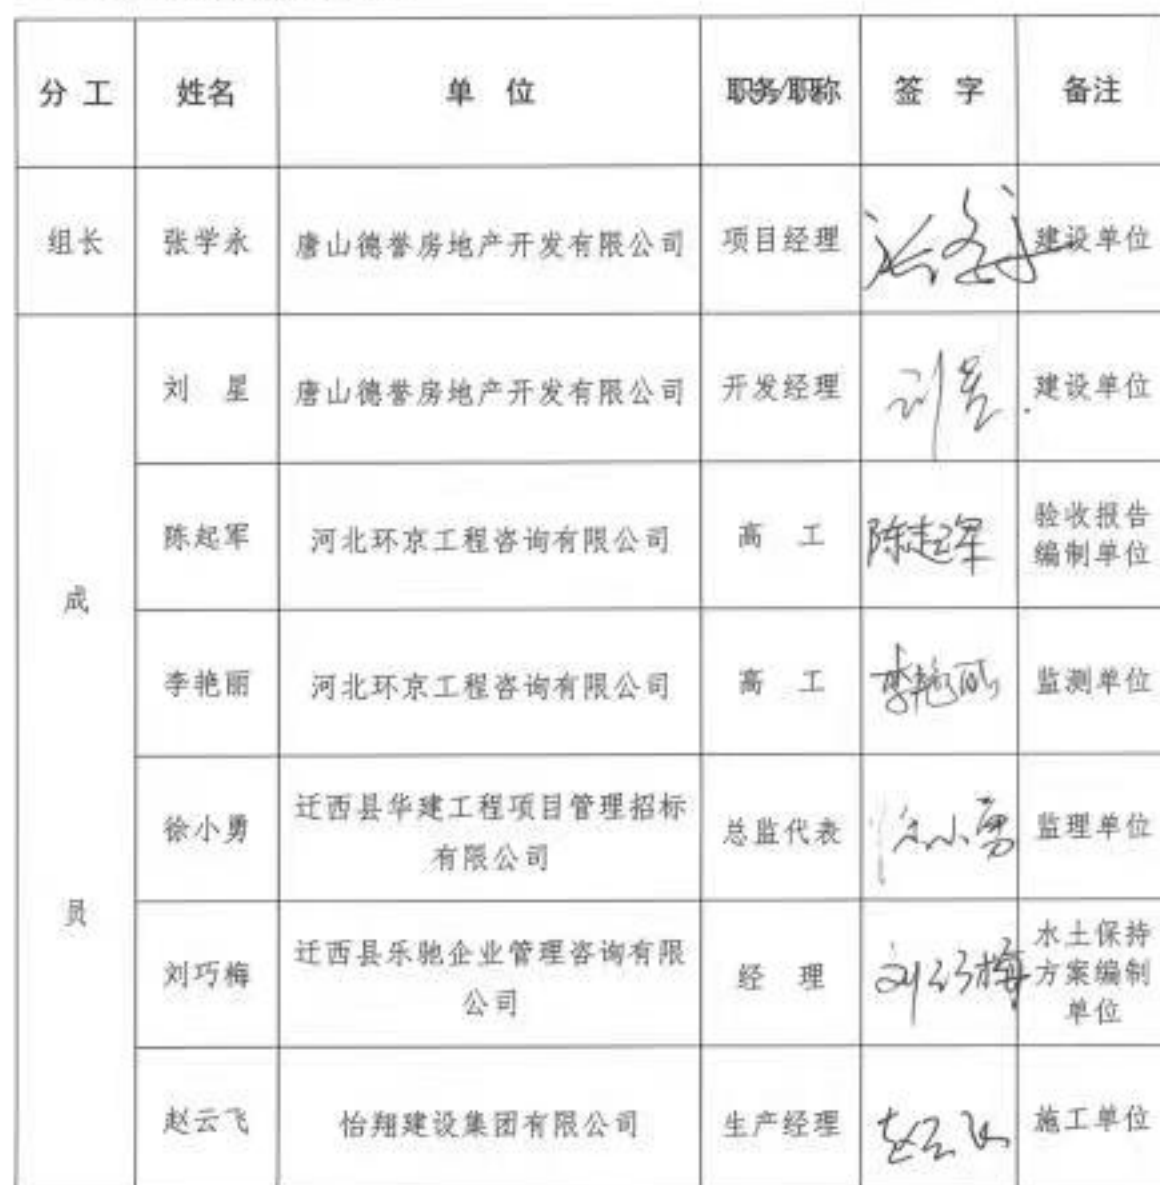 分 工 姓名 单 位 职务/职称 签 字 备注
组长 张学永 唐山德誉房地产开发有限公司 项目经理 张学永 建设单位
刘 星 唐山德誉房地产开发有限公司 开发经理 刘星 建设单位
陈起军 河北环京工程咨询有限公司 高 工 陈起军 验收报告
编制单位
成
李艳丽 河北环京工程咨询有限公司 高 工 李艳丽 监测单位
徐小勇 迁西县华建工程项目管理招标
有限公司 总监代表 徐小勇 监理单位
员
刘巧梅 迁西县乐驰企业管理咨询有限
公司 经 理 刘巧梅 水土保持
方案编制
单位
赵云飞 怡翔建设集团有限公司 生产经理 赵云飞 施工单位